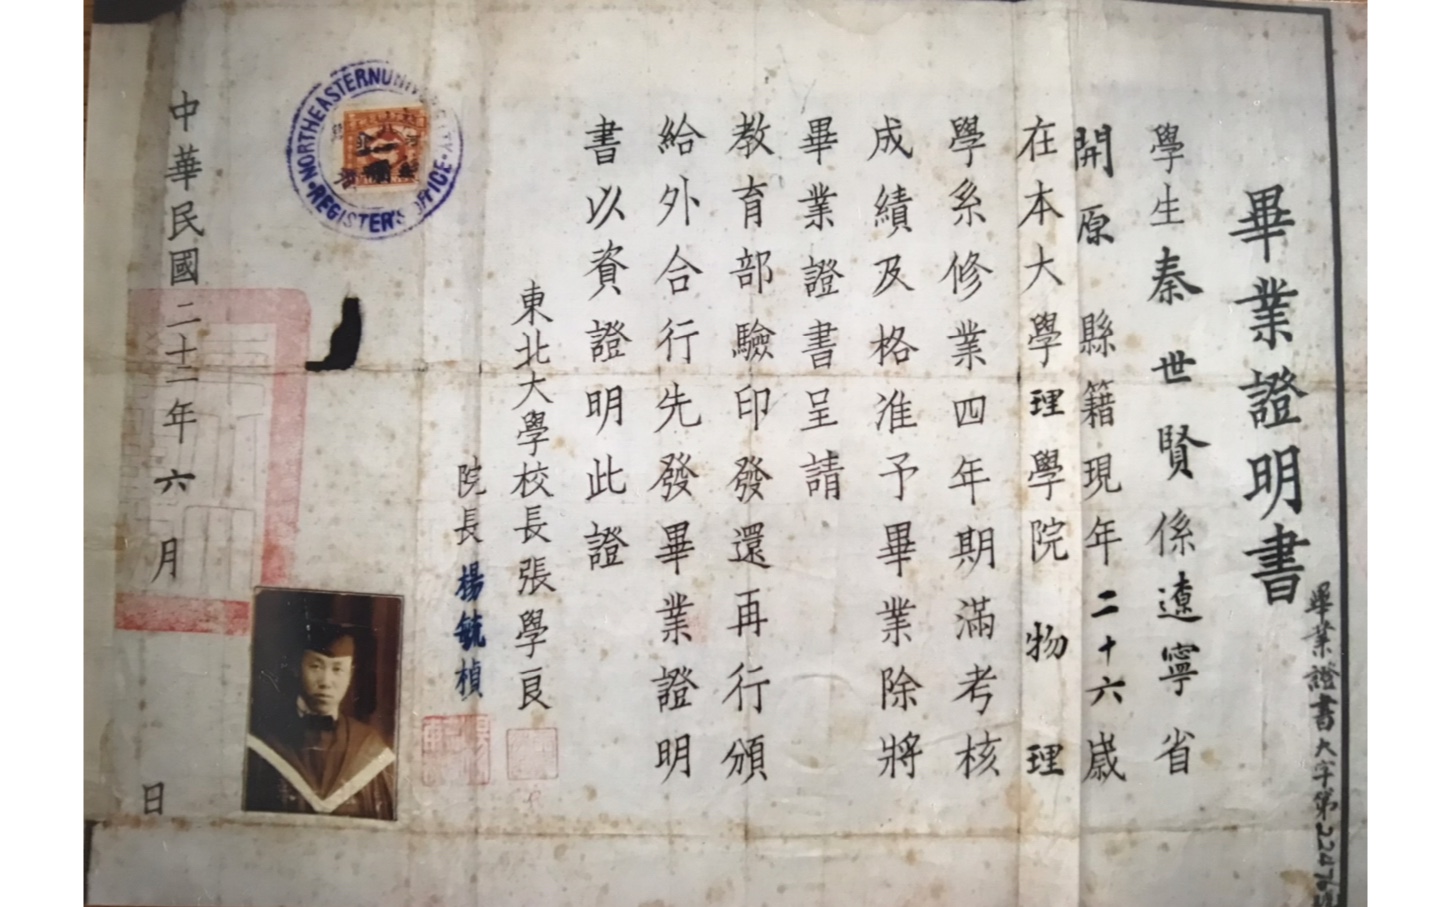 畢業證明書
畢業證書大字第22476號
學生秦世賢係遼寧省
開原縣籍現年二十六歲
在本大學理學院物理
學系修業四年期滿考核
成績及格准予畢業除將
畢業證書呈請
教育部驗印發還再行頒
給外合行先發畢業證明
書以資證明此證
東北大學校長張學良
院長楊毓楨
NORTHEASTERN UNIVERSITY
REGISTER'S OFFICE
中華民國二十二年六月 日